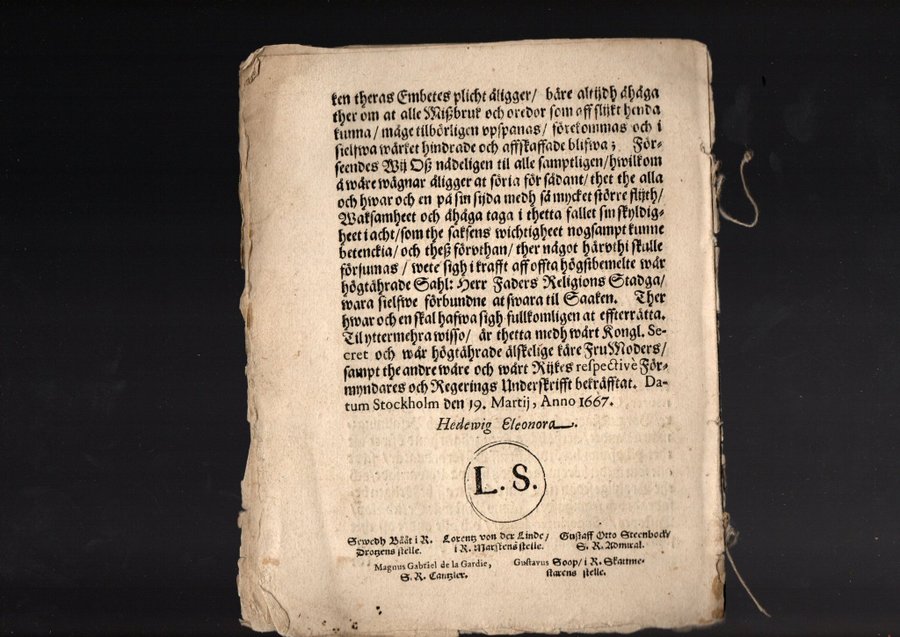 ken theras Embetes plicht åligger/ båre altijdh åhåga
ther om at alle Mißbruk och oredor som aff slijkt henda
kunna/ måge tilbörligen vpspanas/ förekommas och i
sielfwa wärket hindrade och affskaffade blifwa; För-
seendes Wij Oß nådeligen til alle samptligen/ hwilkom
å wåre wägnar åligger at söria för sådant/ thet the alla
och hwar och en på sin sijda medh så mycket större flijth/
Waksamheet och åhåga taga i thetta fallet sin skyldig-
heet i acht/ som the saksens wichtigheet nogsampt kunne
betenckia/ och theß förvthan/ ther något härvthi skulle
försumas/ wete sigh i krafft aff offta högstbemelte wår
högtährade Sahl: Herr Faders Religions Stadga/
wara sielfwe förbundne at swara til Saaken. Ther
hwar och en skal hafwa sigh fullkomligen at effterrätta.
Til yttermehra wisso/ är thetta medh wårt Kongl. Se-
cret och wår högtährade älskelige käre Fru Moders/
sampt the andre wåre och wårt Rijkes respectivè För-
myndares och Regerings Underskrifft bekräfftat. Da-
tum Stockholm den 19. Martij, Anno 1667.
Hedewig Eleonora.
L. S.
Sewedh Bååt i R. Lorentz von der Linde/ Gustaff Otto Steenbock/
Drotzens stelle. i R. Marskens stelle. S. R. Admiral.
Magnus Gabriel de la Gardie, Gustavus Soop/ i R. Skattme-
S. R. Cantzler. starens stelle.